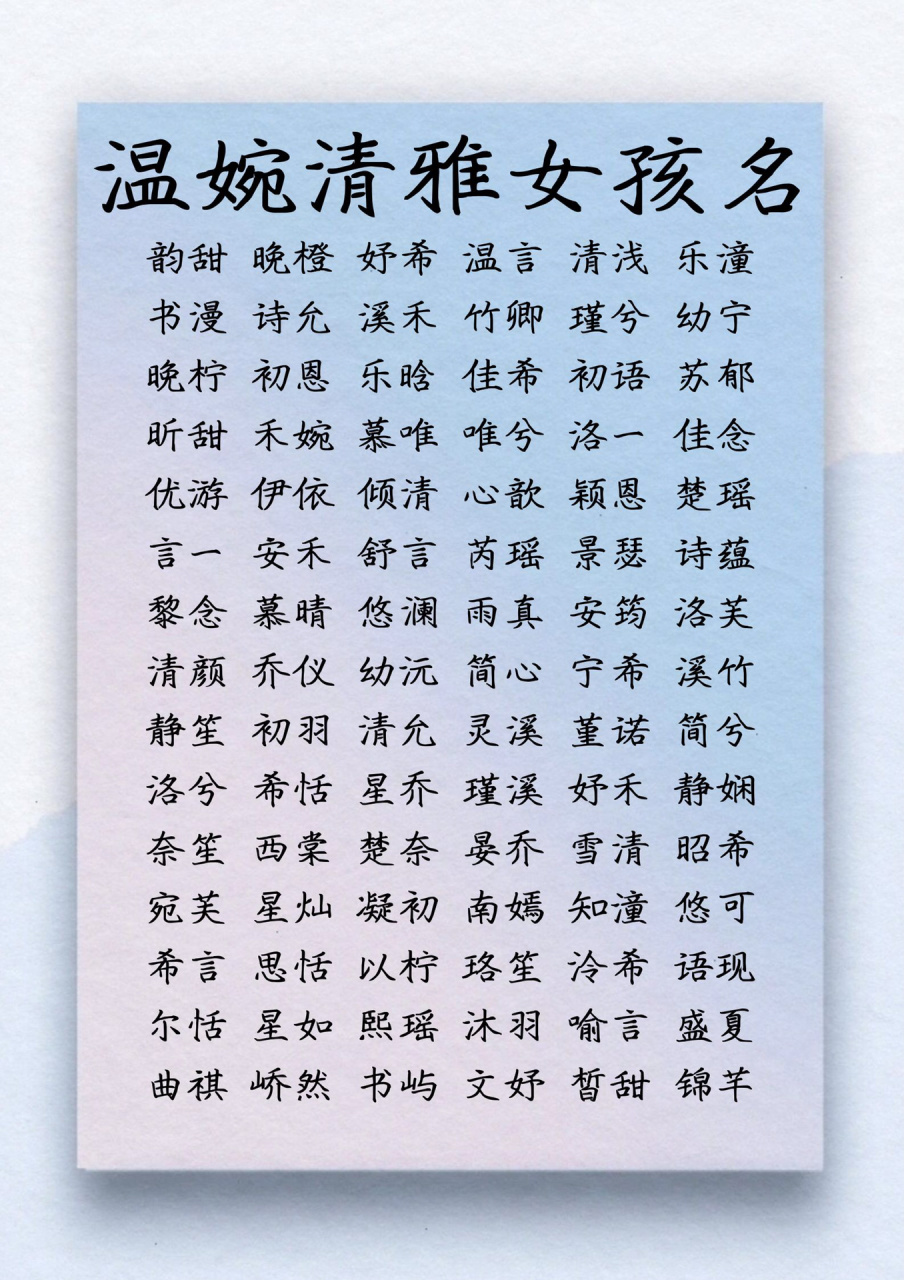 温婉清雅女孩名
韵甜 晚橙 妤希 温言 清浅 乐潼
书漫 诗允 溪禾 竹卿 瑾兮 幼宁
晚柠 初恩 乐晗 佳希 初语 苏郁
昕甜 禾婉 慕唯 唯兮 洛一 佳念
优游 伊依 倾清 心歆 颖恩 楚瑶
言一 安禾 舒言 芮瑶 景瑟 诗蕴
黎念 慕晴 悠澜 雨真 安筠 洛芙
清颜 乔仪 幼沅 简心 宁希 溪竹
静笙 初羽 清允 灵溪 堇诺 简兮
洛兮 希恬 星乔 瑾溪 妤禾 静娴
奈笙 西棠 楚奈 晏乔 雪清 昭希
宛芙 星灿 凝初 南嫣 知潼 悠可
希言 思恬 以柠 珞笙 泠希 语现
尔恬 星如 熙瑶 沐羽 喻言 盛夏
曲祺 峤然 书屿 文妤 皙甜 锦芊